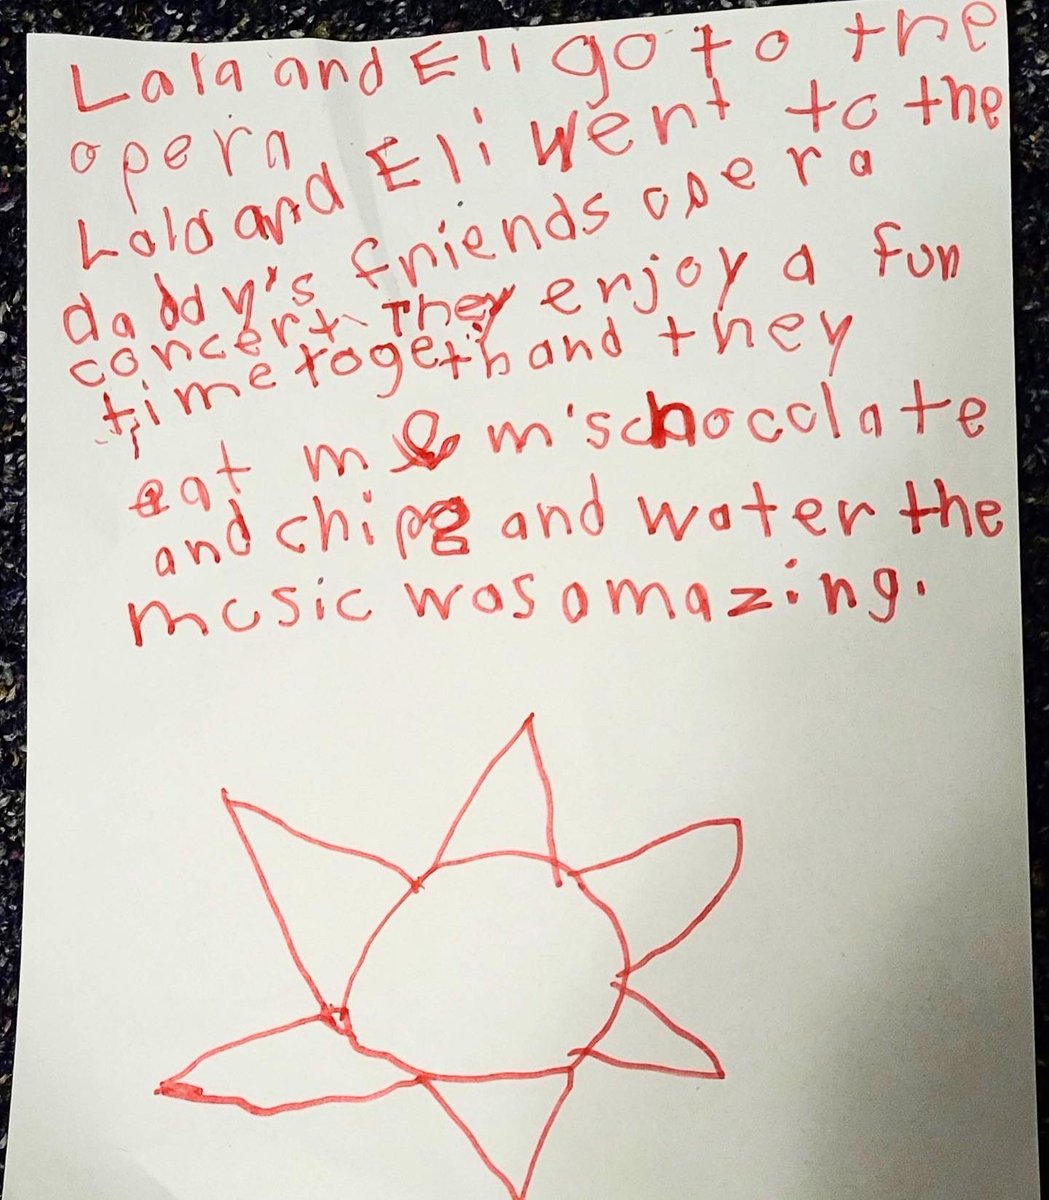 Lala and Eli go to the
opera
Lala and Eli went to the
daddy's friends opera
concert. They enjoy a fun
time togeth and they
eat m & m's chocolate
and chips and water the
music was amazing.